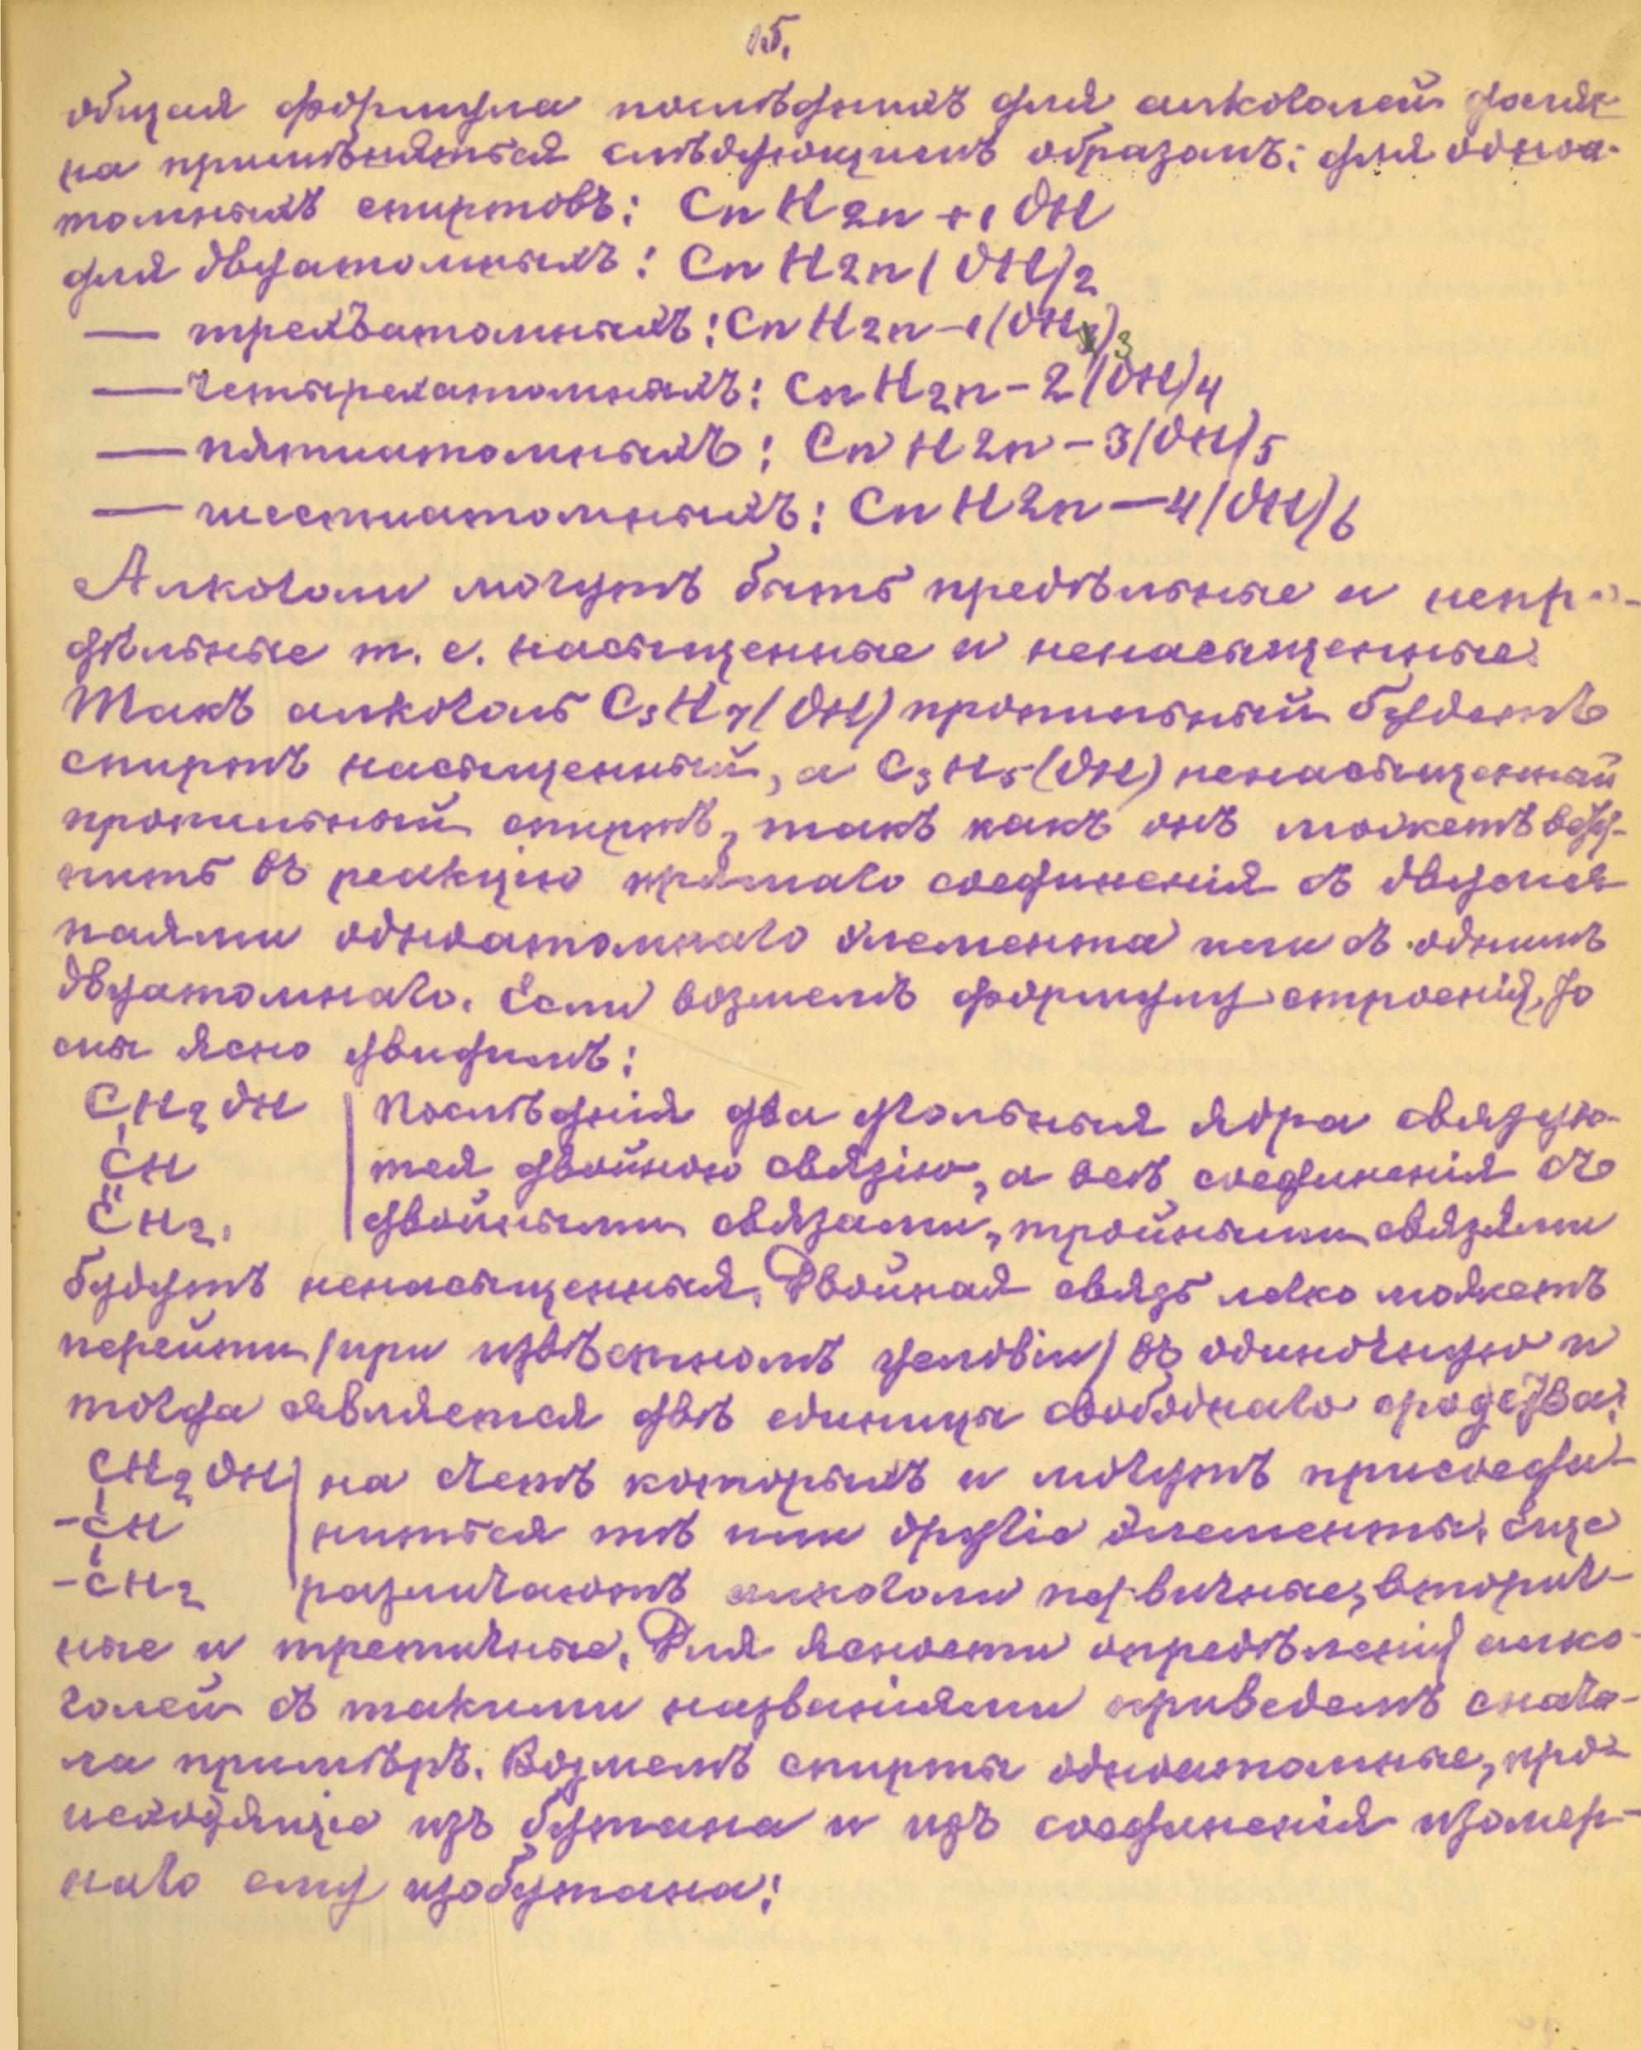 5.
общая формула послѣднихъ для алкоголей долж-
на примѣняться слѣдующимъ образомъ: для одноа-
томныхъ спиртовъ: CnH2n+1OH
для двуатомныхъ: CnH2n(OH)2
— трехъатомныхъ: CnH2n-1(OH)3
— четырехатомныхъ: CnH2n-2(OH)4
— пятиатомныхъ: CnH2n-3(OH)5
— шестиатомныхъ: CnH2n-4(OH)6
Алкоголи могутъ быть предѣльные и непре-
дѣльные т. е. насыщенные и ненасыщенные.
Такъ алкоголь C3H7(OH) пропильный будетъ
спиртъ насыщенный, а C3H5(OH) ненасыщенный
пропильный спиртъ, такъ какъ онъ можетъ всту-
пить въ реакцію прямаго соединенія съ двумя
паями одноатомнаго элемента или съ однимъ
двуатомнаго. Если возмемъ формулу строенія, то
мы ясно увидимъ:
CH2OH | Послѣднія два угольныя ядра связую-
CH | тся двойною связію, а всѣ соединенія съ
CH2. | двойными связами, тройными связями
будутъ ненасыщенныя. Двойная связь легко можетъ
перейти (при извѣстномъ условіи) въ одиночную и
тогда является двѣ единицы свободнаго сродства,
CH2OH | на счетъ которыхъ и могутъ присоеди-
-CH | ниться тѣ или другіе элементы. Еще
-CH2 различаютъ алкоголи первичные, вторич-
ные и третичные. Для ясности опредѣленія алко-
голей съ такими названіями приведемъ снача-
ла примѣръ. Возмемъ спирты одноатомные, про-
исходящіе изъ бутана и изъ соединенія изомер-
наго ему изобутана: